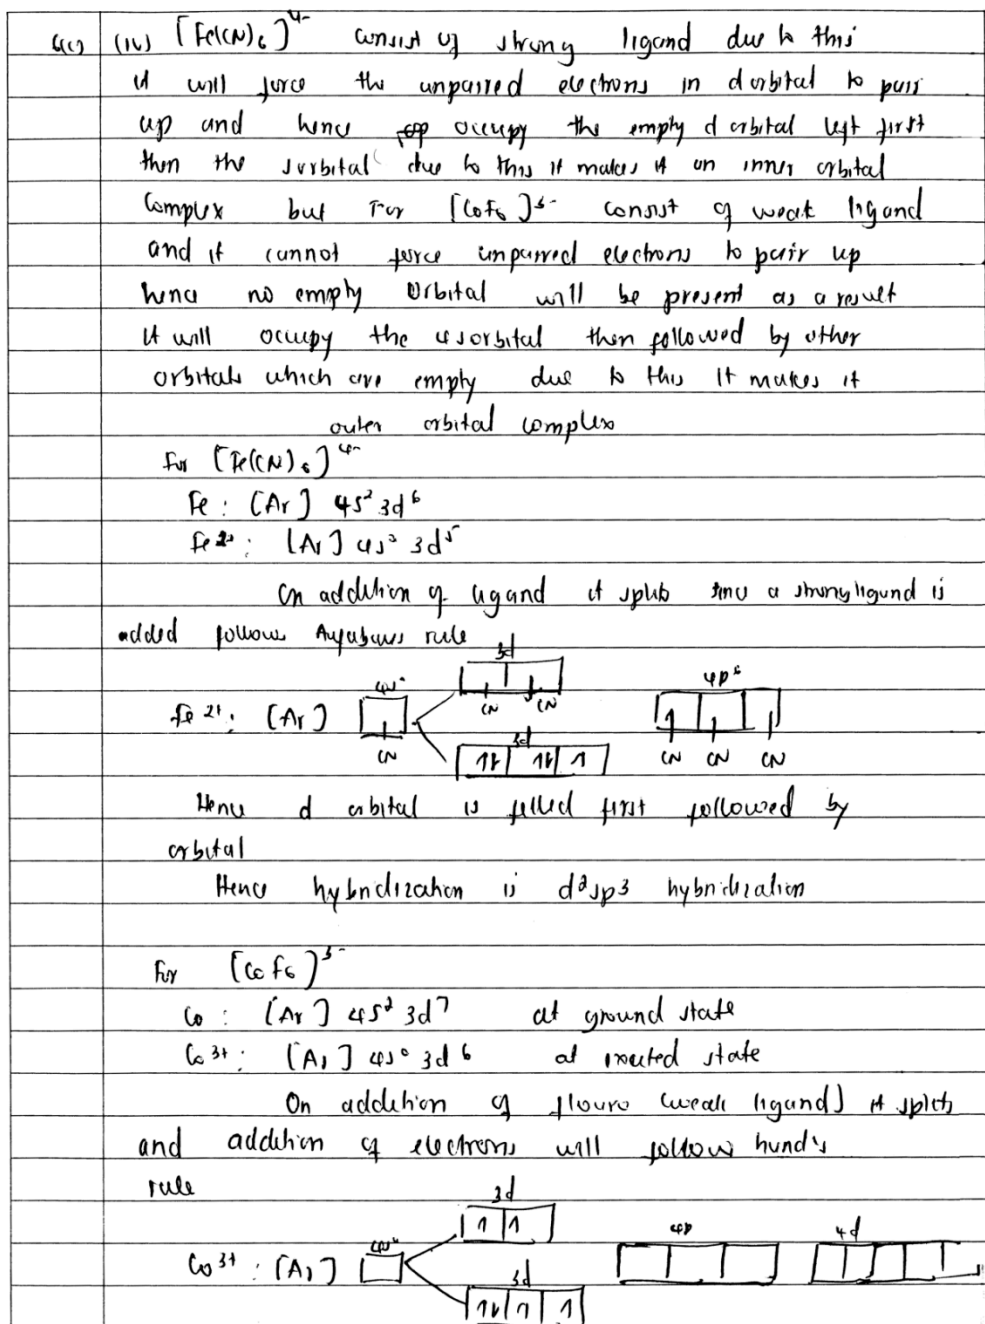 6(c) (iv) [Fe(CN)6]4- consist of strong ligand due to this
it will force the unpaired electrons in d orbital to pair
up and hence occupy the empty d orbital left first
then the s orbital due to this it makes it an inner orbital
Complex but For [CoF6]3- consist of weak ligand
and it cannot force unpaired electrons to pair up
hence no empty Orbital will be present as a result
it will occupy the 4s orbital then followed by other
orbitals which are empty due to this it makes it
outer orbital complex
For [Fe(CN)6]4-
Fe : [Ar] 4s2 3d6
Fe2+ : [Ar] 4s0 3d5
On addition of ligand it splits since a strong ligand is
added follows Aufabaus rule
3d
4s0 4p6
CN CN
Fe2+ : [Ar]
CN 3d CN CN CN
1l 1l 1
Hence d orbital is filled first followed by
orbital
Hence hybridization is d2sp3 hybridization
For [CoF6]3-
Co : [Ar] 4s2 3d7 at ground state
Co3+ : [Ar] 4s0 3d6 at excited state
On addition of flouro (weak ligand) it splits
and addition of electrons will follow hund's
rule
3d
1 1
4s0 4p 4d
Co3+ : [Ar]
3d
1l 1 1